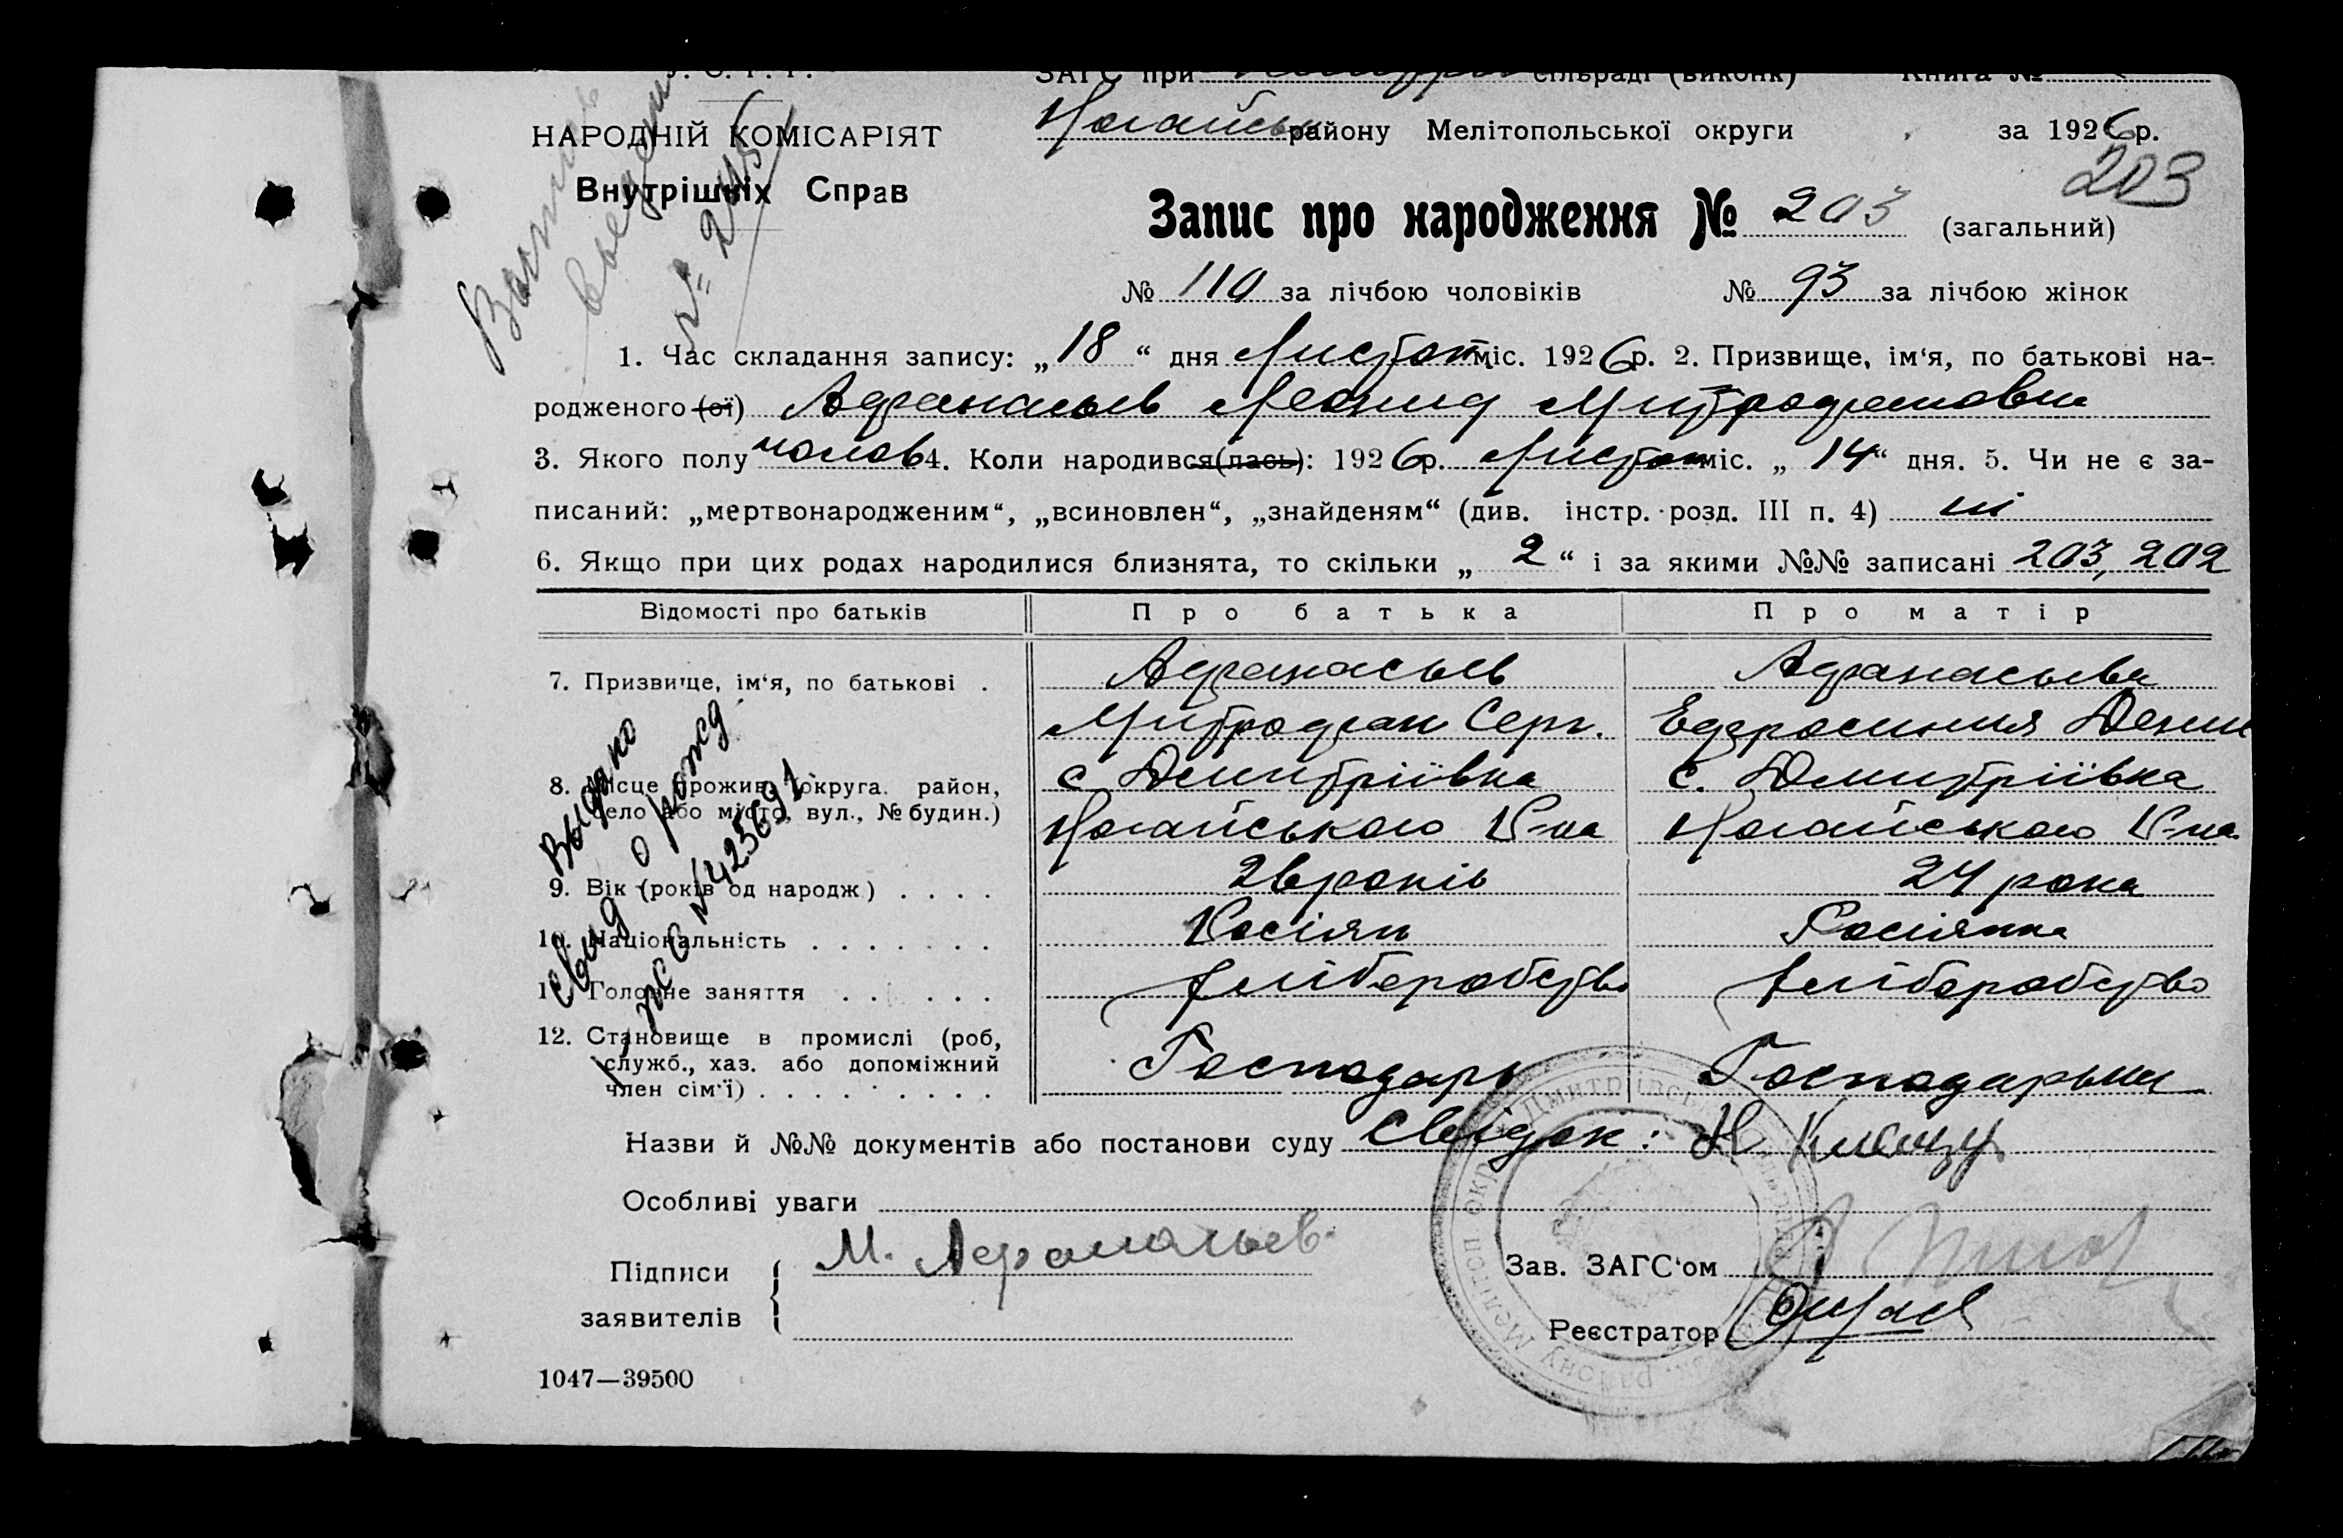 У. С. Р. Р.
ЗАГС при сільраді (виконк) Книга №
НАРОДНІЙ КОМІСАРІЯТ
Внутрішніх Справ
Ногайськ району Мелітопольської округи за 1926 р.
203
Запис про народження № 203 (загальний)
№ 110 за лічбою чоловіків № 93 за лічбою жінок
1. Час складання запису: „18“ дня Листоп міс. 1926 р. 2. Призвище, ім‘я, по батькові на-
родженого (ої) Афанасьев Леонид Митрофанович
3. Якого полу чолов 4. Коли народився (лась): 1926 р. Листоп міс. „14“ дня. 5. Чи не є за-
писаний: „мертвонародженим“, „всиновлен“, „знайденям“ (див. інстр. розд. III п. 4) ні
6. Якщо при цих родах народилися близнята, то скільки „2“ і за якими №№ записані 203, 202
Відомості про батьків Про батька Про матір
7. Призвище, ім‘я, по батькові . Афанасьев Афанасьева
Митрофан Серг. Ефросиния Дени
8. Місце прожив. (округа. район, с Дмитріївка с. Дмитріївка
село або місто, вул., № будин.) Ногайського Р-на Ногайського Р-на
9. Вік (років од народж) . . . . 26 років 24 рока
10. Національність . . . . . . . Росіян Росіянка
11. Головне заняття . . . . . . Хліборобство Хліборобство
12. Становище в промислі (роб,
служб., хаз. або допоміжний Господарь Господарька
член сім‘ї) . . . . . . . .
Назви й №№ документів або постанови суду Свідок: Н.
Особливі уваги
Підписи М. Афанасьев
заявителів
Зав. ЗАГС‘ом
Реєстратор
1047—39500
Выдано
свид о рожд
№ 425691